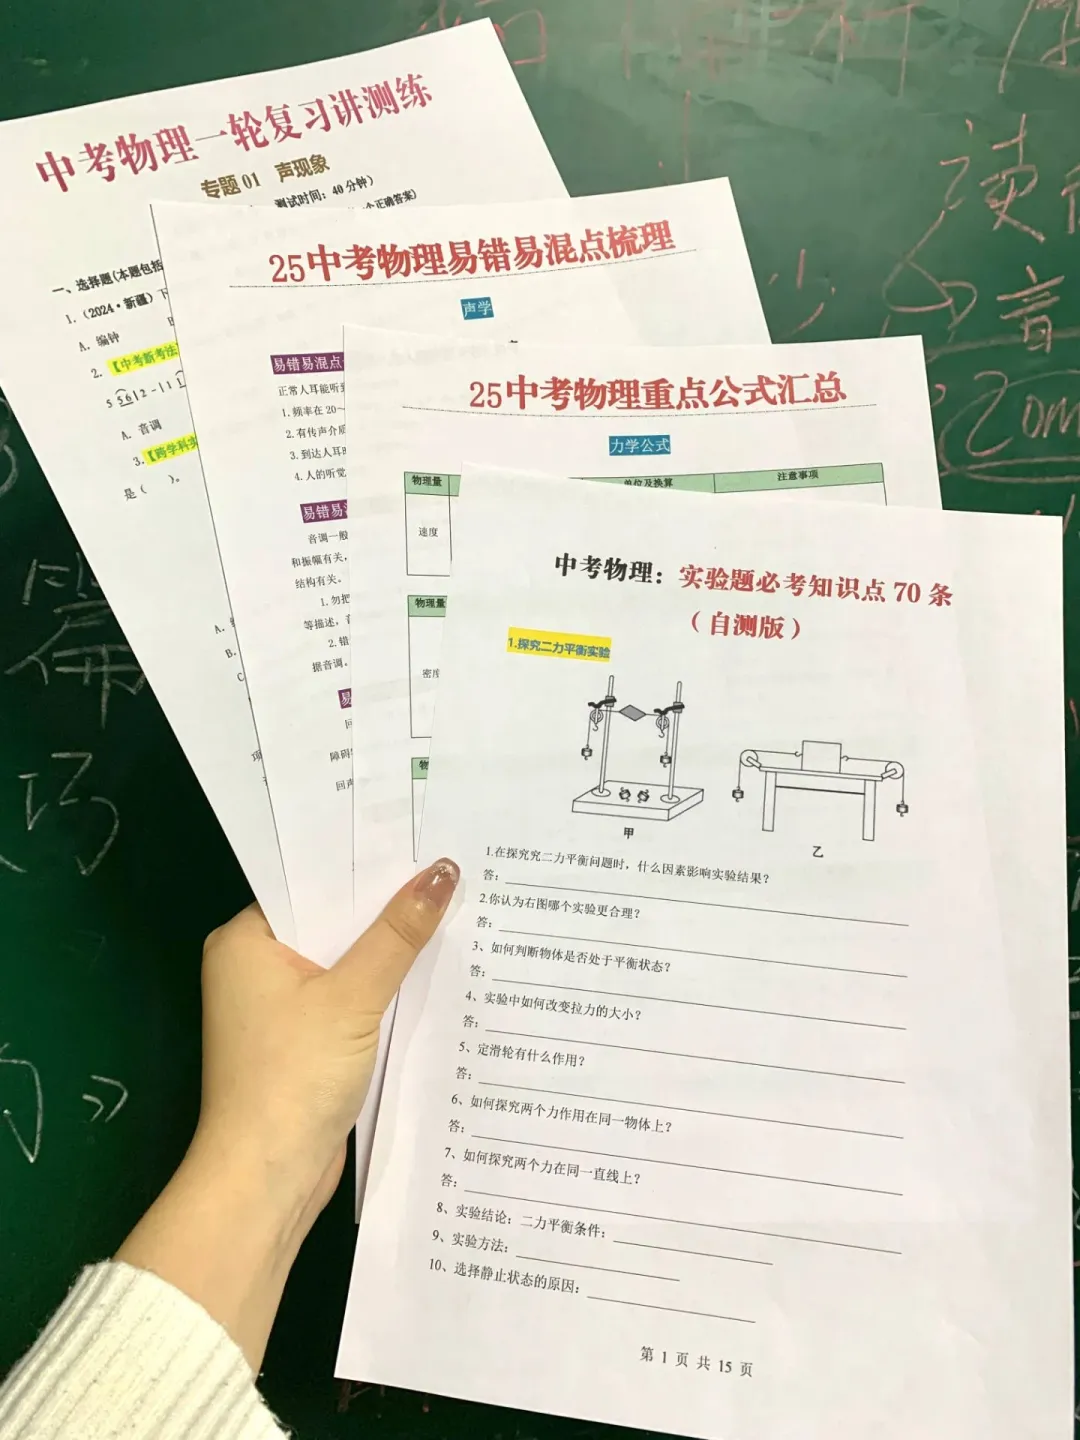 中考物理一轮复习讲测练
专题01 声现象
测试时间：40分钟）
个正确答案)
一、选择题(本题包括
1.（2024·新疆）下
A. 编钟
2.【中考新考法】
5 5612-11 1
A. 音调
3.【跨学科实
是（ ）。
25中考物理易错易混点梳理
声学
易错易混点
正常人耳能听到
1.频率在20～
2.有传声介质
3.到达人耳时
4.人的听觉
易错易混
音调一般
和振幅有关，
结构有关。
1.勿把
等描述，音
2.错
据音调。
易
回
障碍
回声
25中考物理重点公式汇总
力学公式
物理量
单位及换算
注意事项
速度
物理量
密度
物
中考物理：实验题必考知识点70条
（自测版）
1.探究二力平衡实验
甲
乙
1.在探究究二力平衡问题时，什么因素影响实验结果？
答：
2.你认为右图哪个实验更合理？
答：
3、如何判断物体是否处于平衡状态？
答：
4、实验中如何改变拉力的大小？
答：
5、定滑轮有什么作用？
答：
6、如何探究两个力作用在同一物体上？
答：
7、如何探究两个力在同一直线上？
答：
8、实验结论：二力平衡条件：
9、实验方法：
10、选择静止状态的原因：
第 1 页 共 15 页
读
少
音
巧